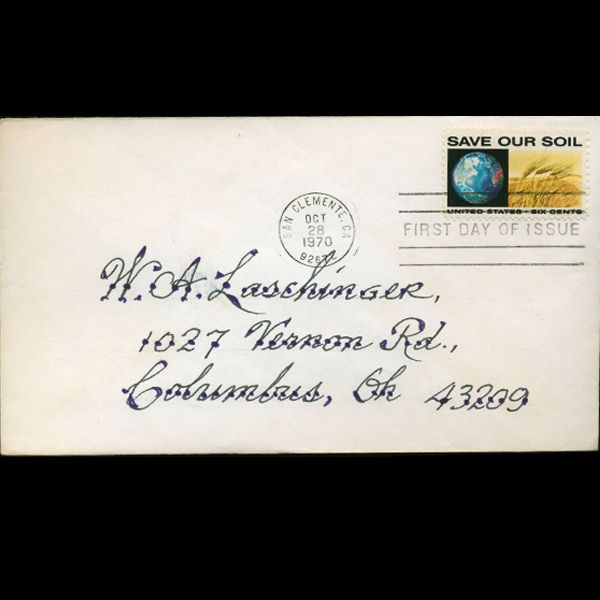 SAVE OUR SOIL
UNITED STATES • SIX CENTS
SAN CLEMENTE, CA
OCT
28
1970
FIRST DAY OF ISSUE
W. A. Laschinger,
1027 Vernon Rd.,
Columbus, Oh 43209